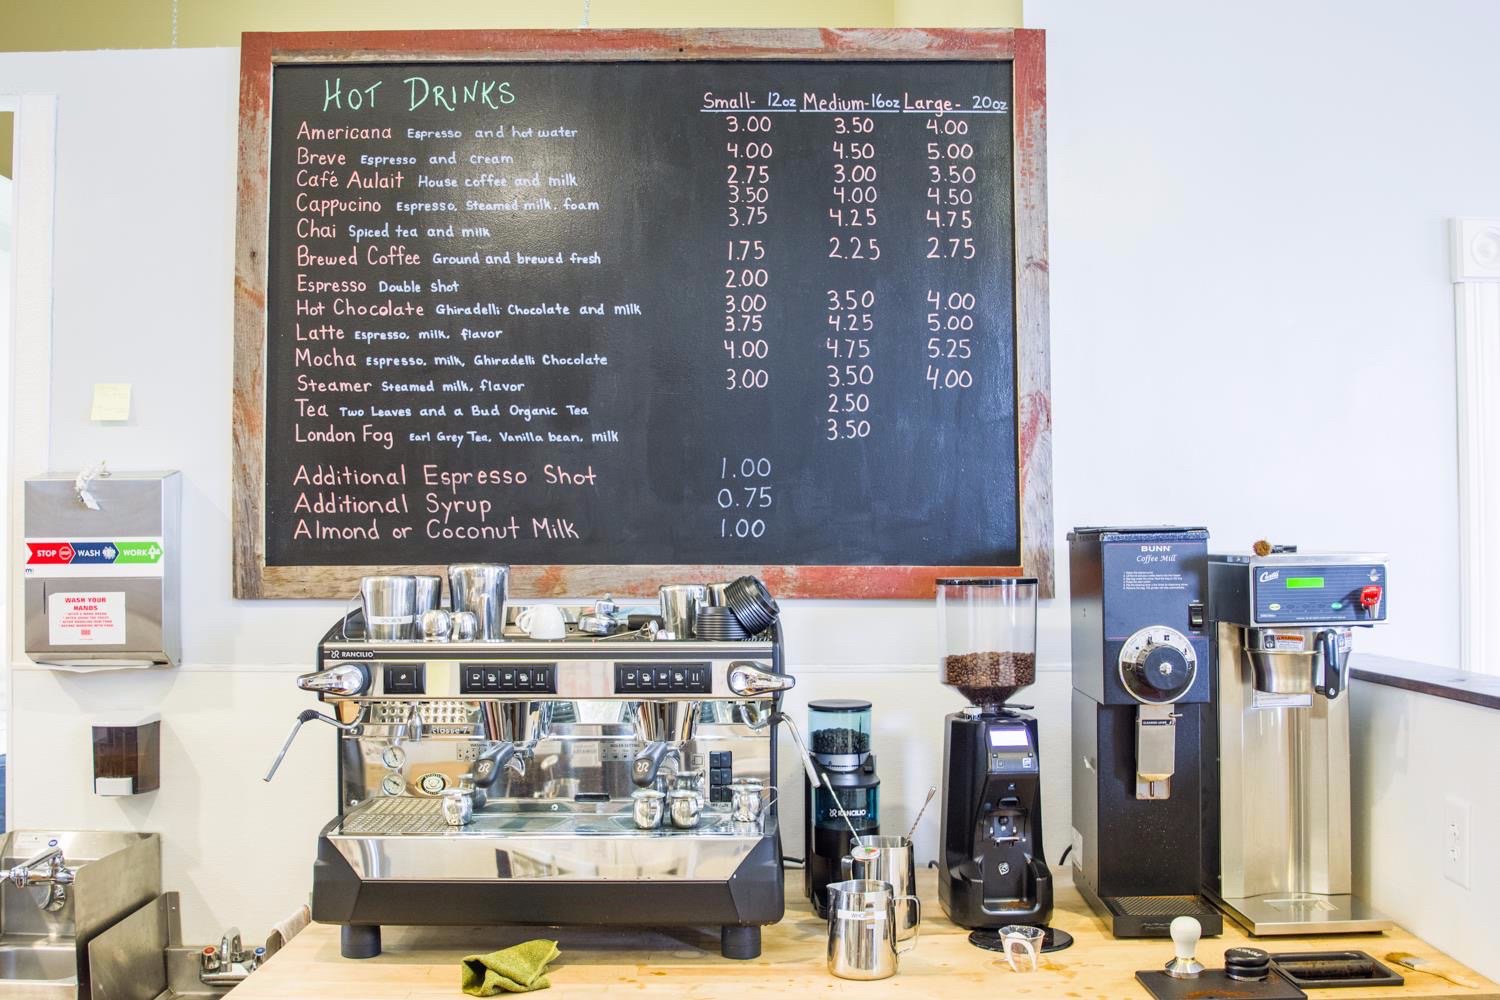 HOT DRINKS
Small- 12oz Medium-16oz Large- 20oz
Americana Espresso and hot water 3.00 3.50 4.00
Breve Espresso and cream 4.00 4.50 5.00
Café Aulait House coffee and milk 2.75 3.00 3.50
Cappucino Espresso, Steamed milk, foam 3.50 4.00 4.50
Chai Spiced tea and milk 3.75 4.25 4.75
Brewed Coffee Ground and brewed fresh 1.75 2.25 2.75
Espresso Double shot 2.00
Hot Chocolate Ghiradelli Chocolate and milk 3.00 3.50 4.00
Latte Espresso, milk, flavor 3.75 4.25 5.00
Mocha Espresso, milk, Ghiradelli Chocolate 4.00 4.75 5.25
Steamer Steamed milk, flavor 3.00 3.50 4.00
Tea Two Leaves and a Bud Organic Tea 2.50
London Fog Earl Grey Tea, Vanilla bean, milk 3.50
Additional Espresso Shot 1.00
Additional Syrup 0.75
Almond or Coconut Milk 1.00
STOP WASH WORK
WASH YOUR
HANDS
RANCILIO
classe 7
RANCILIO
BUNN
Coffee Mill
Curtis
WARNING